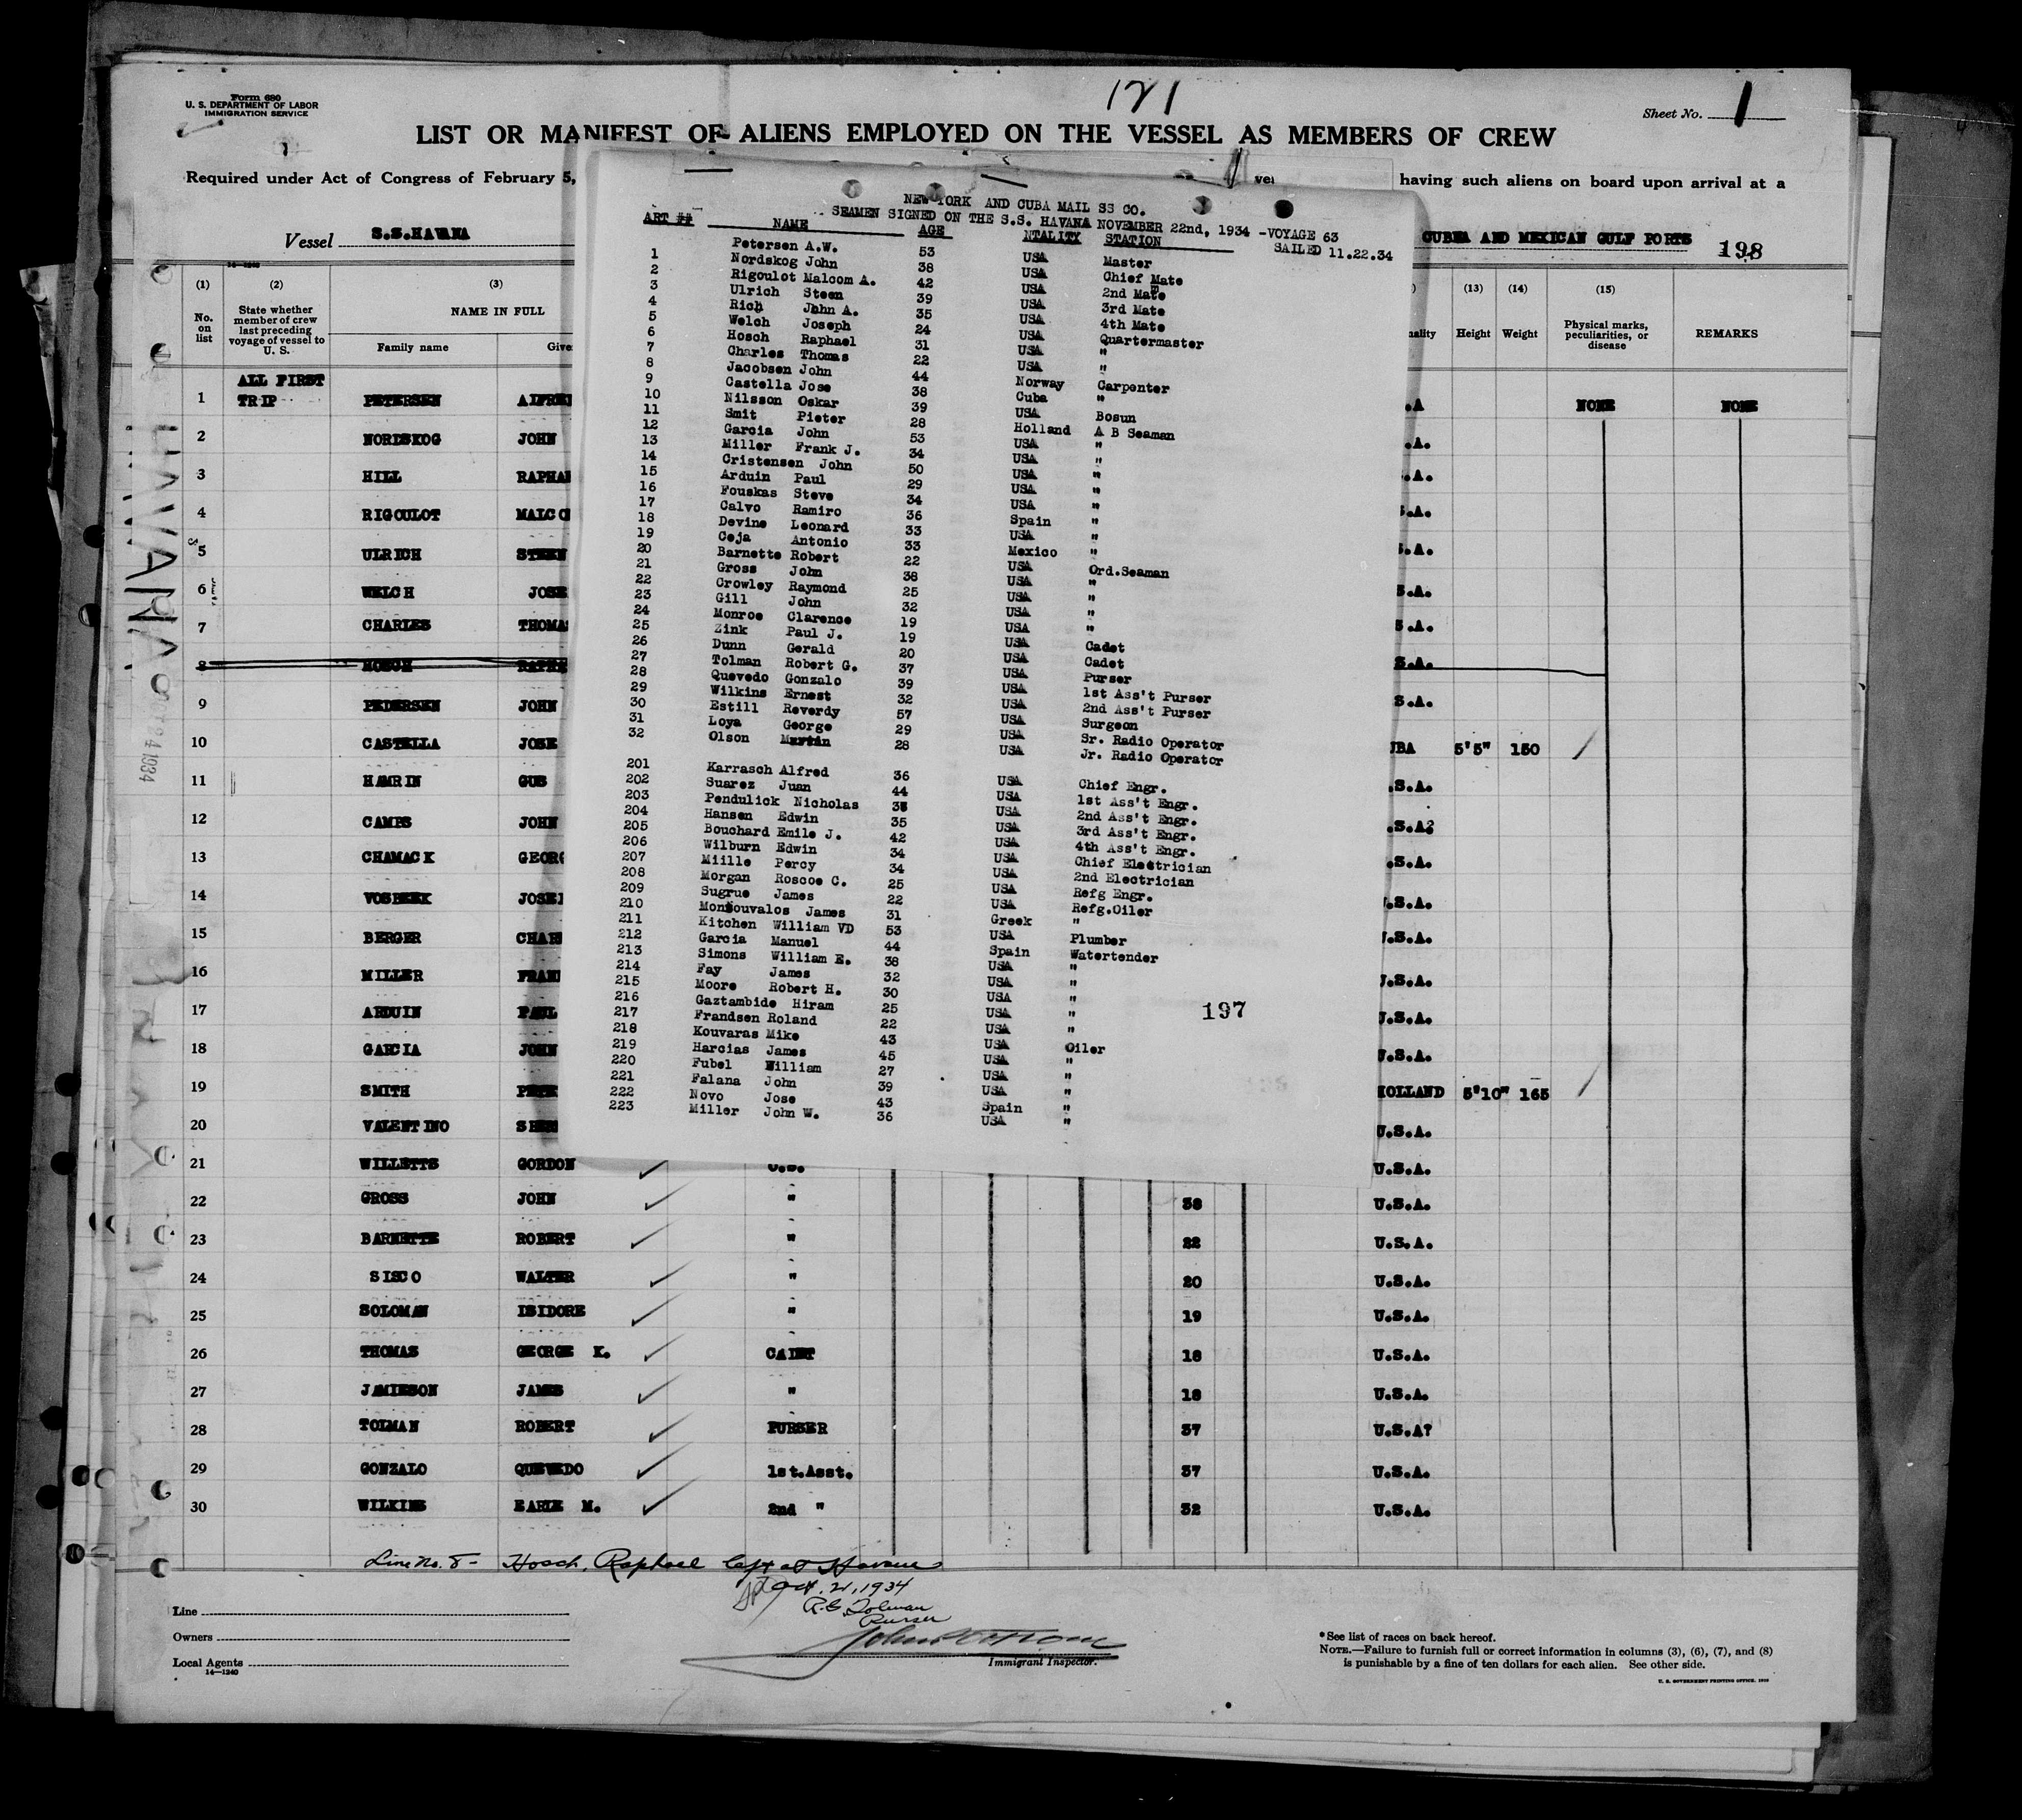 Form 680
U. S. DEPARTMENT OF LABOR
IMMIGRATION SERVICE
121
Sheet No. 1
LIST OR MANIFEST OF ALIENS EMPLOYED ON THE VESSEL AS MEMBERS OF CREW
Required under Act of Congress of February 5,
having such aliens on board upon arrival at a
Vessel S.S.HAVANA
CUBEA AND MEXICAN GULF PORTS 198
(1) (2) (3) (13) (14) (15)
No. on list
State whether member of crew last preceding voyage of vessel to U. S.
NAME IN FULL
Family name
Height Weight
Physical marks, peculiarities, or disease
REMARKS
ALL FIRST
1 TRIP PETERSEN ALFRE .A NONE NONE
2 NORDSKOG JOHN .A.
3 HILL RAPHA .A.
4 RIGOULOT MALCO S.A.
5 ULRICH STEEN S.A.
6 WELCH JOSE S.A.
7 CHARLES THOMA S.A.
8 HOSCH RAPHA S.A.
9 PEDERSEN JOHN S.A.
10 CASTELLA JOSE UBA 5'5" 150
11 HAMRIN GUS .S.A.
12 CAMPS JOHN .S.A?
13 CHAMACK GEORG .S.A.
14 VOSBEEK JOSE .S.A.
15 BERGER CHAR .S.A.
16 MILLER FRAN .S.A.
17 ARDUIN PAUL .S.A.
18 GARCIA JOHN U.S.A.
19 SMITH PETE HOLLAND 5'10" 165
20 VALENTINO U.S.A.
21 WILLETTS GORDON O.S. U.S.A.
22 GROSS JOHN " 38 U.S.A.
23 BARNETTE ROBERT " 22 U.S.A.
24 SISCO WALTER " 20 U.S.A.
25 SOLOMAN ISIDORE " 19 U.S.A.
26 THOMAS GEORGE K. CADET 18 U.S.A.
27 JAMIESON JAMES " 18 U.S.A.
28 TOLMAN ROBERT PURSER 37 U.S.A?
29 GONZALO QUEVEDO 1st.Asst. 37 U.S.A.
30 WILKINS EARLE M. 2nd " 32 U.S.A.
NEW YORK AND CUBA MAIL SS CO.
SEAMEN SIGNED ON THE S.S. HAVANA NOVEMBER 22nd, 1934 -VOYAGE 63
SAILED 11.22.34
ART ## NAME AGE NTALITY STATION
1 Petersen A.W. 53 USA Master
2 Nordskog John 38 USA Chief Mate
3 Rigoulot Malcom A. 42 USA 2nd Mate
4 Ulrich Steen 39 USA 3rd Mate
5 Rich John A. 35 USA 4th Mate
6 Welch Joseph 24 USA Quartermaster
7 Hosch Raphael 31 USA "
8 Charles Thomas 22 USA "
9 Jacobsen John 44 Norway Carpenter
10 Castella Jose 38 Cuba "
11 Nilsson Oskar 39 USA Bosun
12 Smit Pieter 28 Holland A B Seaman
13 Garcia John 53 USA "
14 Miller Frank J. 34 USA "
15 Cristensen John 50 USA "
16 Arduin Paul 29 USA "
17 Fouskas Steve 34 USA "
18 Calvo Ramiro 36 Spain "
19 Devine Leonard 33 USA "
20 Ceja Antonio 33 Mexico "
21 Barnette Robert 22 USA Ord.Seaman
22 Gross John 38 USA "
23 Crowley Raymond 25 USA "
24 Gill John 32 USA "
25 Monroe Clarence 19 USA "
26 Zink Paul J. 19 USA Cadet
27 Dunn Gerald 20 USA Cadet
28 Tolman Robert G. 37 USA Purser
29 Quevedo Gonzalo 39 USA 1st Ass't Purser
30 Wilkins Ernest 32 USA 2nd Ass't Purser
31 Estill Reverdy 57 USA Surgeon
32 Loya George 29 USA Sr. Radio Operator
Olson Martin 28 USA Jr. Radio Operator
201 Karrasch Alfred 36 USA Chief Engr.
202 Suarez Juan 44 USA 1st Ass't Engr.
203 Pendulick Nicholas USA 2nd Ass't Engr.
204 Hansen Edwin 35 USA 3rd Ass't Engr.
205 Bouchard Emile J. 42 USA 4th Ass't Engr.
206 Wilburn Edwin 34 USA Chief Electrician
207 Miille Percy 34 USA 2nd Electrician
208 Morgan Roscoe C. 25 USA Refg Engr.
209 Sugrue James 22 USA Refg.Oiler
210 Monsouvalos James 31 Greek "
211 Kitchen William VD 53 USA Plumber
212 Garcia Manuel 44 Spain Watertender
213 Simons William E. 38 USA "
214 Fay James 32 USA "
215 Moore Robert H. 30 USA "
216 Gaztambide Hiram 25 USA "
217 Frandsen Roland 22 USA "
218 Kouvaras Mike 43 USA Oiler
219 Harcias James 45 USA "
220 Fubel William 27 USA "
221 Falana John 39 USA "
222 Novo Jose 43 Spain "
223 Miller John W. 36 USA "
197
HAVANA
Line No. 8 - Hosch, Raphael left at Havana
Oct. 21, 1934
R.G. Tolman
Purser
Line
Owners
Local Agents
14—1240
Immigrant Inspector.
*See list of races on back hereof.
NOTE.—Failure to furnish full or correct information in columns (3), (6), (7), and (8)
is punishable by a fine of ten dollars for each alien. See other side.
U. S. GOVERNMENT PRINTING OFFICE